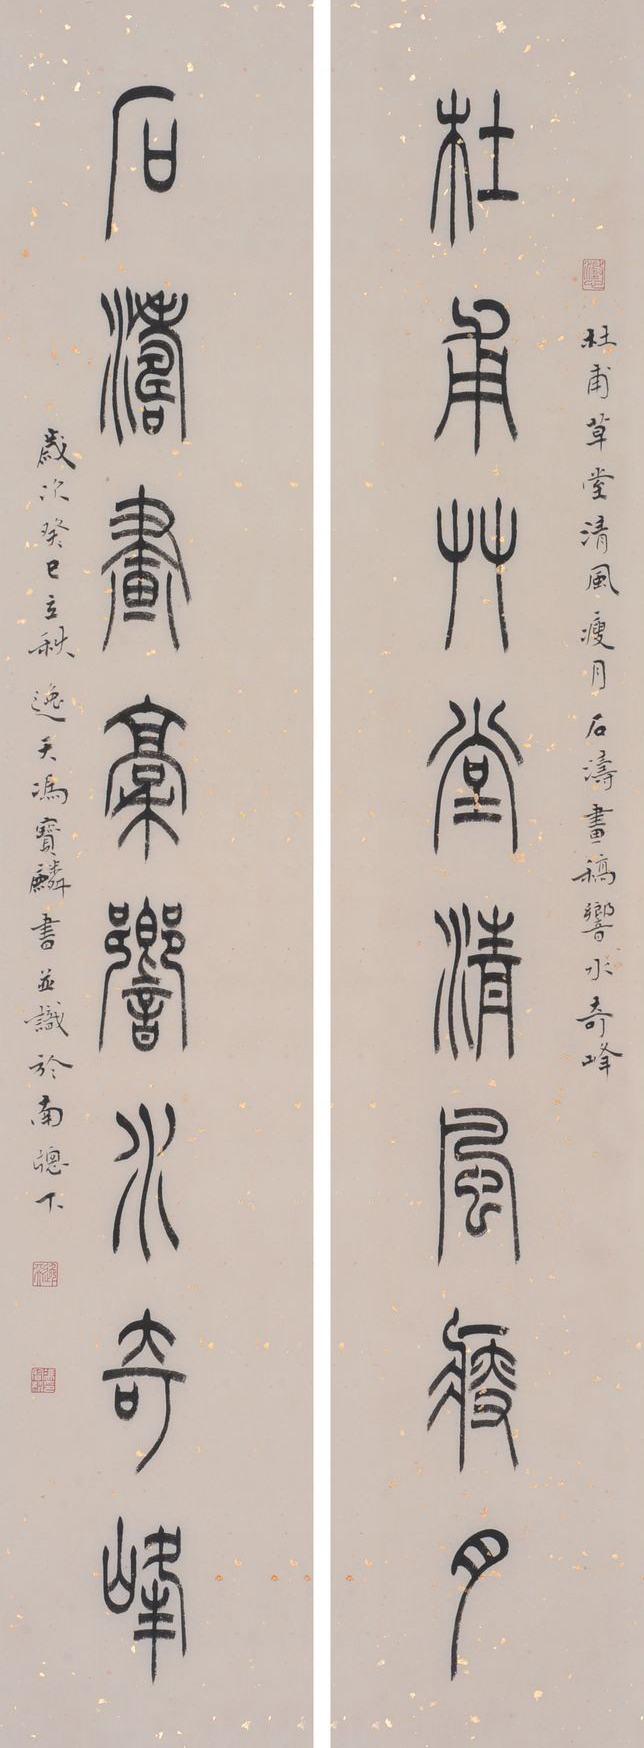 杜甫草堂清風瘦月
杜甫草堂清風瘦月石濤畫稿響水奇峰
石濤畫稾響水奇峰
歲次癸巳立秋逸天馮寶麟書並識於南窗下